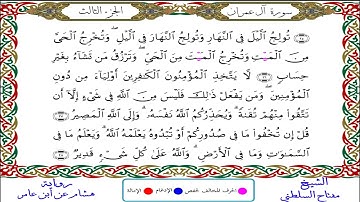 سورة آل عمران
الجزء الثالث
تُولِجُ ٱلَّيْلَ فِى ٱلنَّهَارِ وَتُولِجُ ٱلنَّهَارَ فِى ٱلَّيْلِ ۖ وَتُخْرِجُ ٱلْحَىَّ
مِنَ ٱلْمَيْتِ وَتُخْرِجُ ٱلْمَيْتَ مِنَ ٱلْحَىِّ ۖ وَتَرْزُقُ مَن تَشَآءُ بِغَيْرِ
حِسَابٍ لَا يَتَّخِذِ ٱلْمُؤْمِنُونَ ٱلْكَٰفِرِينَ أَوْلِيَآءَ مِن دُونِ
ٱلْمُؤْمِنِينَ ۖ وَمَن يَفْعَلْ ذَٰلِكَ فَلَيْسَ مِنَ ٱللَّهِ فِى شَىْءٍ إِلَّآ أَن
تَتَّقُوا۟ مِنْهُمْ تُقَىٰةً ۗ وَيُحَذِّرُكُمُ ٱللَّهُ نَفْسَهُۥ ۗ وَإِلَى ٱللَّهِ ٱلْمَصِيرُ
قُلْ إِن تُخْفُوا۟ مَا فِى صُدُورِكُمْ أَوْ تُبْدُوهُ يَعْلَمْهُ ٱللَّهُ ۗ وَيَعْلَمُ مَا فِى
ٱلسَّمَٰوَٰتِ وَمَا فِى ٱلْأَرْضِ ۗ وَٱللَّهُ عَلَىٰ كُلِّ شَىْءٍ قَدِيرٌ
الشيخ
مفتاح السلطني
الحرف المخالف لحفص
الإدغام
الإمالة
رواية
هشام عن ابن عامر